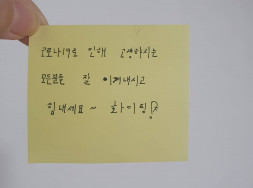 코로나19로 인해 고생하시는
모든분들 잘 이겨내시고
힘내세요~ 화이팅!